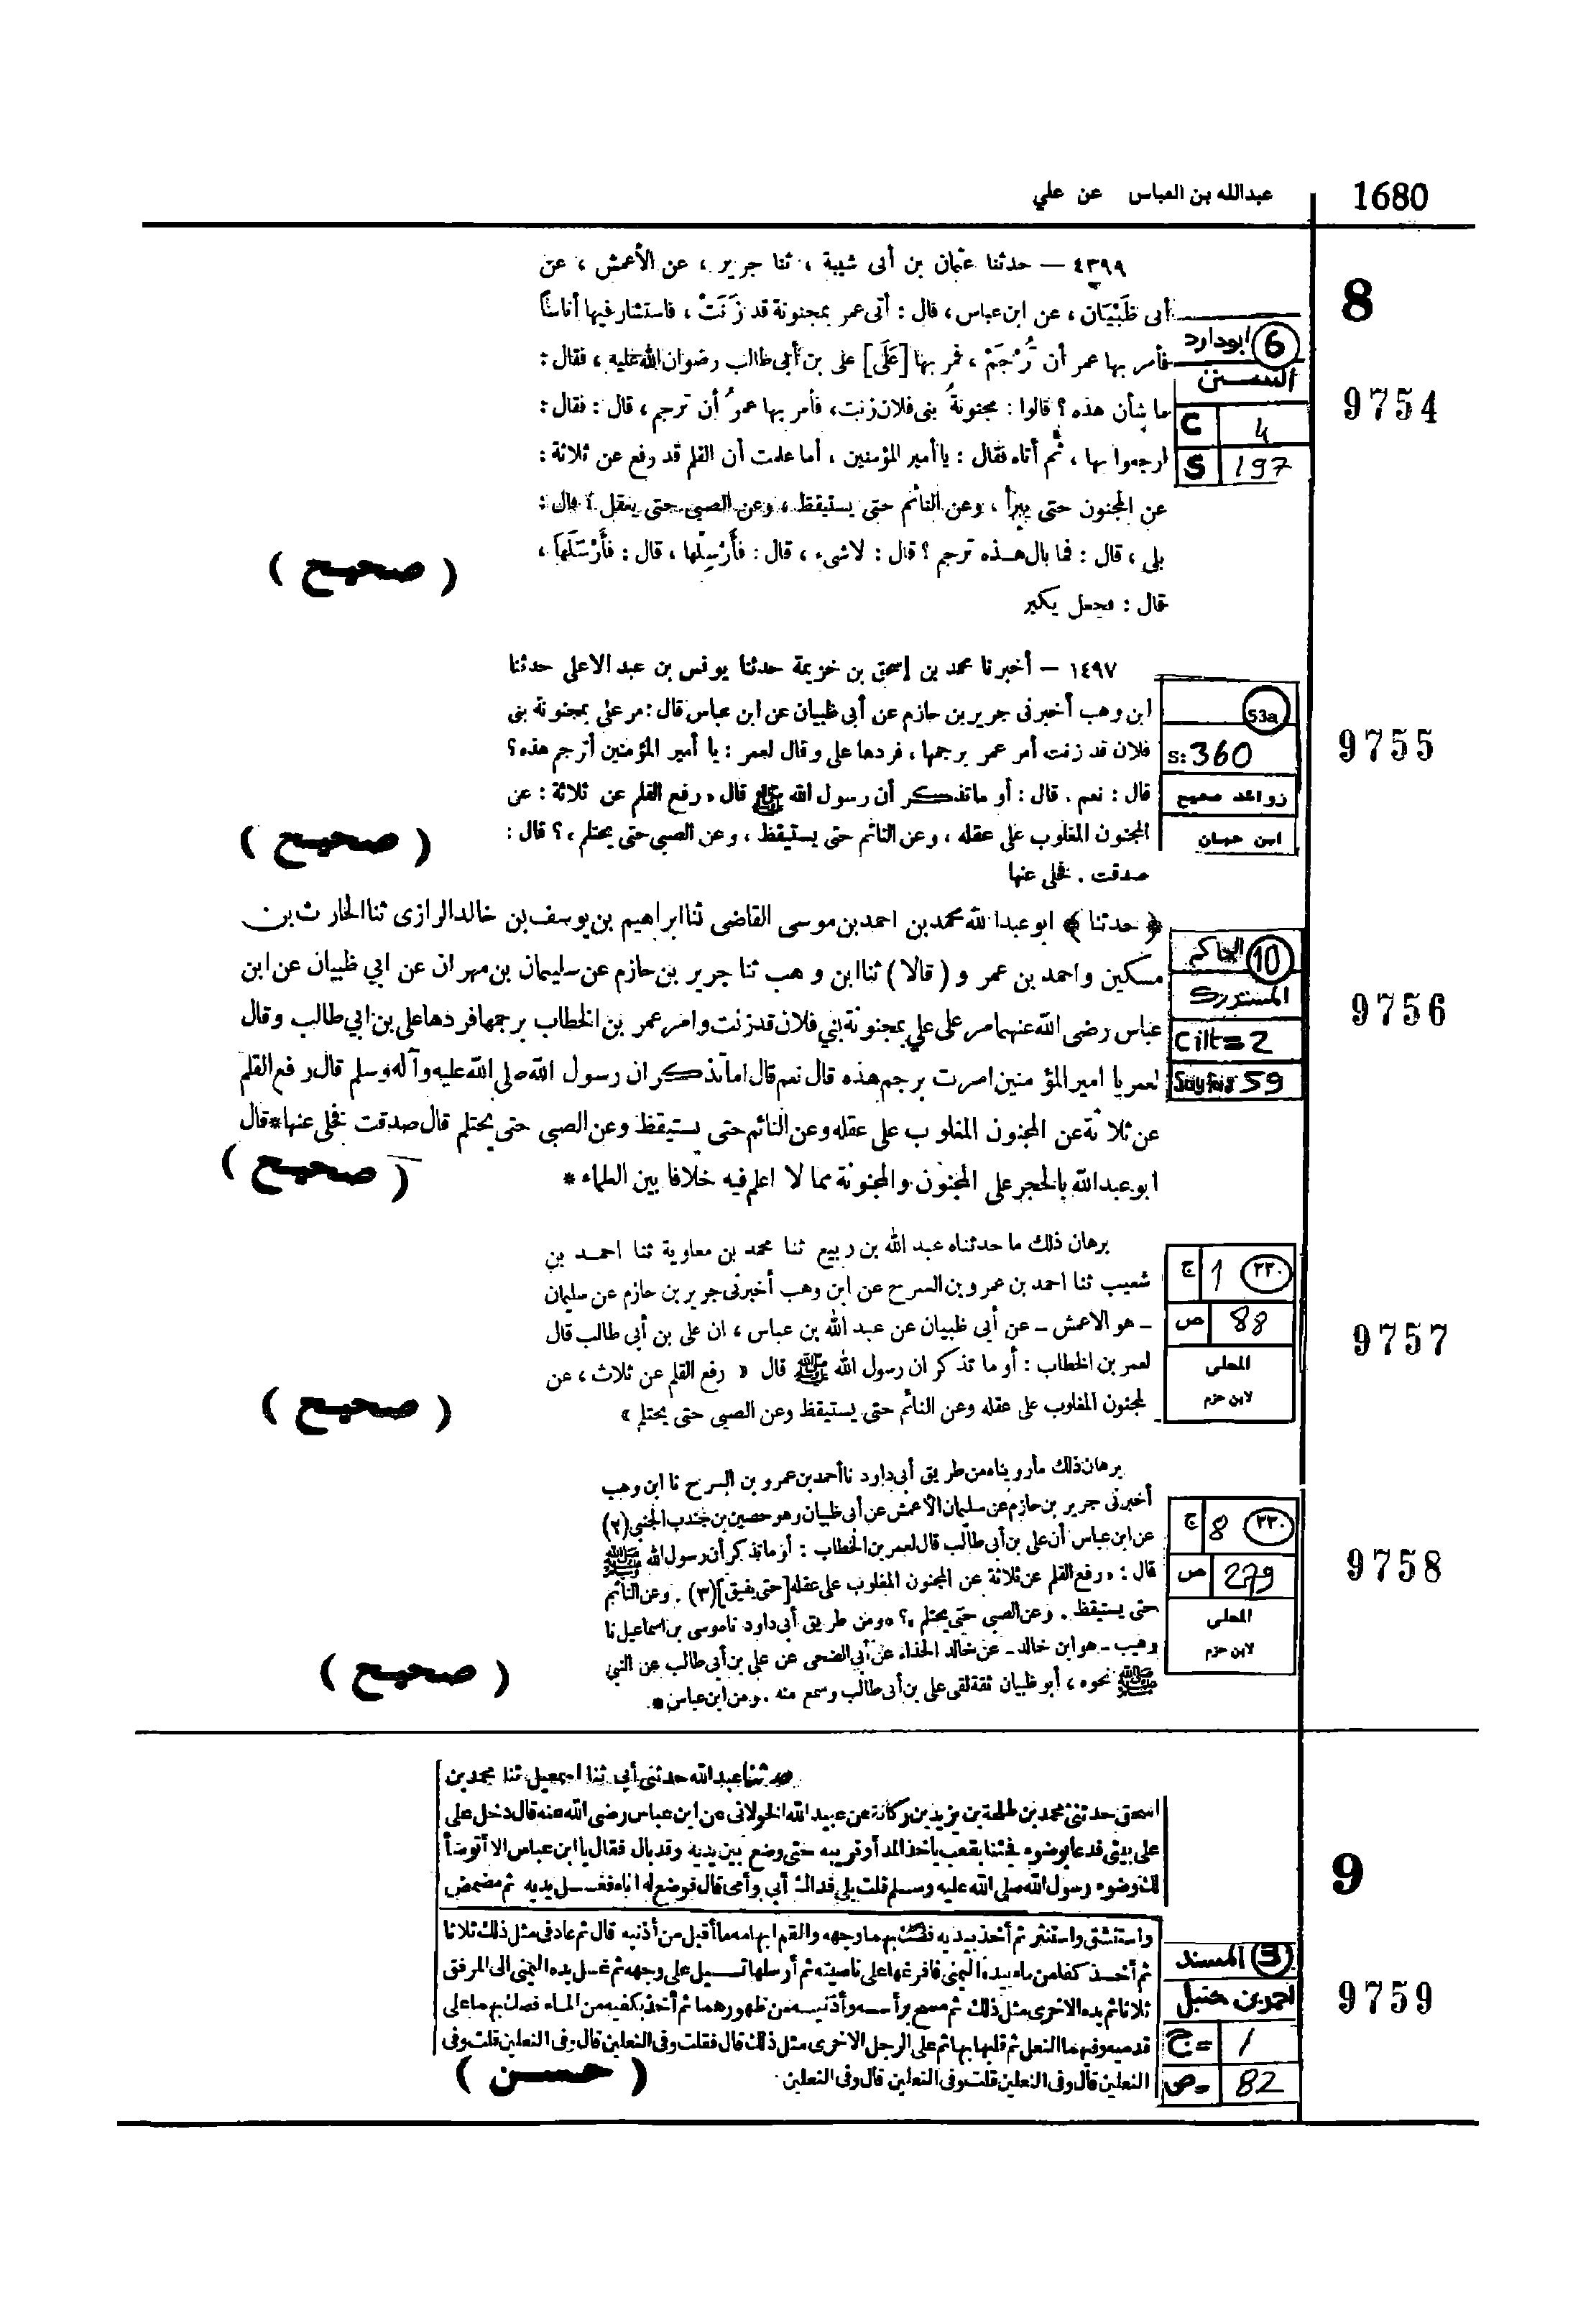 1680
عبدالله بن العباس عن علي
8
٤٣٩٩ — حدثنا عثمان بن أبى شيبة ، ثنا جرير ، عن الأعمش ، عن
أبى ظَبْيَان ، عن ابن عباس ، قال : أتى عمر بمجنونة قد زَنَتْ ، فاستشار فيها أناسًا
فأمر بها عمر أن تُرْجَمَ ، فمر بها [عَلَى] على بن أبى طالب رضوان الله عليه ، فقال :
ما شأن هذه ؟ قالوا : مجنونةُ بنى فلان زنت، فأمر بها عمرُ أن ترجم ، قال : فقال :
ارجعوا بها ، ثم أتاه فقال : يا أمير المؤمنين ، أما علمت أن القلم قد رفع عن ثلاثة :
عن المجنون حتى يبرأ ، وعن النائم حتى يستيقظ ، وعن الصبى حتى يعقل ؟ قال :
بلى ، قال : فما بال هذه ترجم ؟ قال : لاشىء ، قال : فأَرْسِلْها ، قال : فأَرْسَلَهَا ،
قال : فجعل يكبر
( صحيح )
6 ابوداود
السنن
C 4
S 197
9754
١٤٩٧ — أخبرنا محمد بن إسحق بن خزيمة حدثنا يونس بن عبد الاعلى حدثنا
ابن وهب أخبرنى جرير بن حازم عن أبى ظبيان عن ابن عباس قال : مر على بمجنونة بنى
فلان قد زنت أمر عمر برجمها ، فردها على وقال لعمر : يا أمير المؤمنين أترجم هذه ؟
قال : نعم . قال : أو ماتذكر أن رسول الله ﷺ قال « رفع القلم عن ثلاثة : عن
المجنون المغلوب على عقله ، وعن النائم حتى يستيقظ ، وعن الصبى حتى يحتلم ، ؟ قال :
صدقت . فخلى عنها
( صحيح )
53a
S: 360
زوائد صحيح
ابن حبان
9755
﴿ حدثنا ﴾ ابو عبدالله محمد بن احمد بن موسى القاضى ثنا ابراهيم بن يوسف بن خالد الرازى ثنا الحارث بن
مسكين واحمد بن عمر و ( قالا ) ثنا ابن وهب ثنا جرير بن حازم عن سليمان بن مهران عن ابي ظبيان عن ابن
عباس رضى الله عنهما مر على علي بمجنونة بني فلان قد زنت وامر عمر بن الخطاب برجمها فردها على بن ابي طالب وقال
لعمر يا امير المؤمنين امرت برجم هذه قال نعم قال اما تذكر ان رسول الله صلى الله عليه وآله وسلم قال رفع القلم
عن ثلاثة عن المجنون المغلوب على عقله وعن النائم حتى يستيقظ وعن الصبى حتى يحتلم قال صدقت فخلى عنها * قال
ابو عبدالله بالحجر على المجنون والمجنونة مما لا اعلم فيه خلافا بين العلماء *
( صحيح )
10 الحاكم
المستدرك
Cilt= 2
Sayfa= 59
9756
برهان ذلك ما حدثناه عبد الله بن ربيع ثنا محمد بن معاوية ثنا احمد بن
شعيب ثنا احمد بن عمرو بن السرح عن ابن وهب أخبرنى جرير بن حازم عن سليمان
ـ هو الاعمش ـ عن أبى ظبيان عن عبد الله بن عباس ، ان على بن أبى طالب قال
لعمر بن الخطاب : أو ما تذكر ان رسول الله ﷺ قال « رفع القلم عن ثلاث ، عن
لمجنون المغلوب على عقله وعن النائم حتى يستيقظ وعن الصبى حتى يحتلم »
( صحيح )
٢٢٠ 1 ج
88 ص
المحلى
لابن حزم
9757
برهان ذلك مارويناه من طريق أبى داود نا أحمد بن عمرو بن السرح نا ابن وهب
أخبرنى جرير بن حازم عن سليمان الأعمش عن أبى ظبيان وهو حصين بن جندب الجنبى (٢)
عن ابن عباس أن على بن أبى طالب قال لعمر بن الخطاب : أو ماتذكر أن رسول الله ﷺ
قال : « رفع القلم عن ثلاثة عن المجنون المغلوب على عقله [حتى يفيق] (٣) . وعن النائم
حتى يستيقظ . وعن الصبى حتى يحتلم . ؟ » ومن طريق أبى داود نا موسى بن اسماعيل نا
وهيب ـ هو ابن خالد ـ عن خالد الحذاء عن أبى الضحى عن على بن أبى طالب عن النبى
ﷺ نحوه ، أبو ظبيان ثقة لقى على بن أبى طالب وسمع منه . ومن ابن عباس *.
( صحيح )
٢٢٠ 8 ج
279 ص
المحلى
لابن حزم
9758
9
حدثنا عبدالله حدثنى أبي ثنا اسمعيل ثنا محمد بن
اسحق حدثنى محمد بن طلحة بن يزيد بن ركانة عن عبيد الله الخولانى عن ابن عباس رضى الله عنه قال دخل على
على بيتى فدعا بوضوء فجئنا بقعب يأخذ المد أو قريبه حتى وضع بين يديه وقد بال فقال يا ابن عباس الا أتوضأ
لك وضوء رسول الله صلى الله عليه وسلم قلت بلى فداك أبي وأمى قال فوضع له اناء فغسل يديه ثم مضمض
واستنشق واستنثر ثم أخذ بيديه فصك بهما وجهه والقم ابهامه ما أقبل من أذنيه قال ثم عاد فى مثل ذلك ثلاثا
ثم أخذ كفا من ماء بيده اليمنى فافرغها على ناصيته ثم أرسلها تسيل على وجهه ثم غسل يده اليمنى الى المرفق
ثلاثا ثم يده الاخرى مثل ذلك ثم مسح برأسه وأذنيه من ظهورهما ثم أخذ بكفيه من الماء فصك بهما على
قدميه وفيهما النعل ثم قلبها بها ثم على الرجل الاخرى مثل ذلك قال فقلت وفى النعلين قال وفى النعلين قلت وفى
النعلين قال وفى النعلين قلت وفى النعلين قال وفى النعلين
( حسن )
3 المسند
احمد بن حنبل
ج= 1
ص= 82
9759